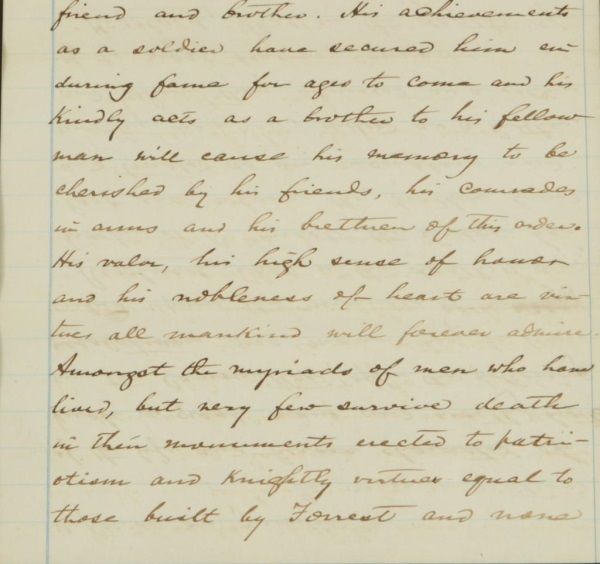 friend and brother. His achievements
as a soldier have secured him en-
during fame for ages to come and his
Kindly acts as a brother to his fellow
man will cause his memory to be
cherished by his friends, his comrades
in arms and his brethren of this order.
His valor, his high sense of honor
and his nobleness of heart are vir-
tues all mankind will forever admire.
Amongst the myriads of men who have
lived, but very few survive death
in their monuments erected to patri-
otism and Knightly virtues equal to
those built by Forrest and none